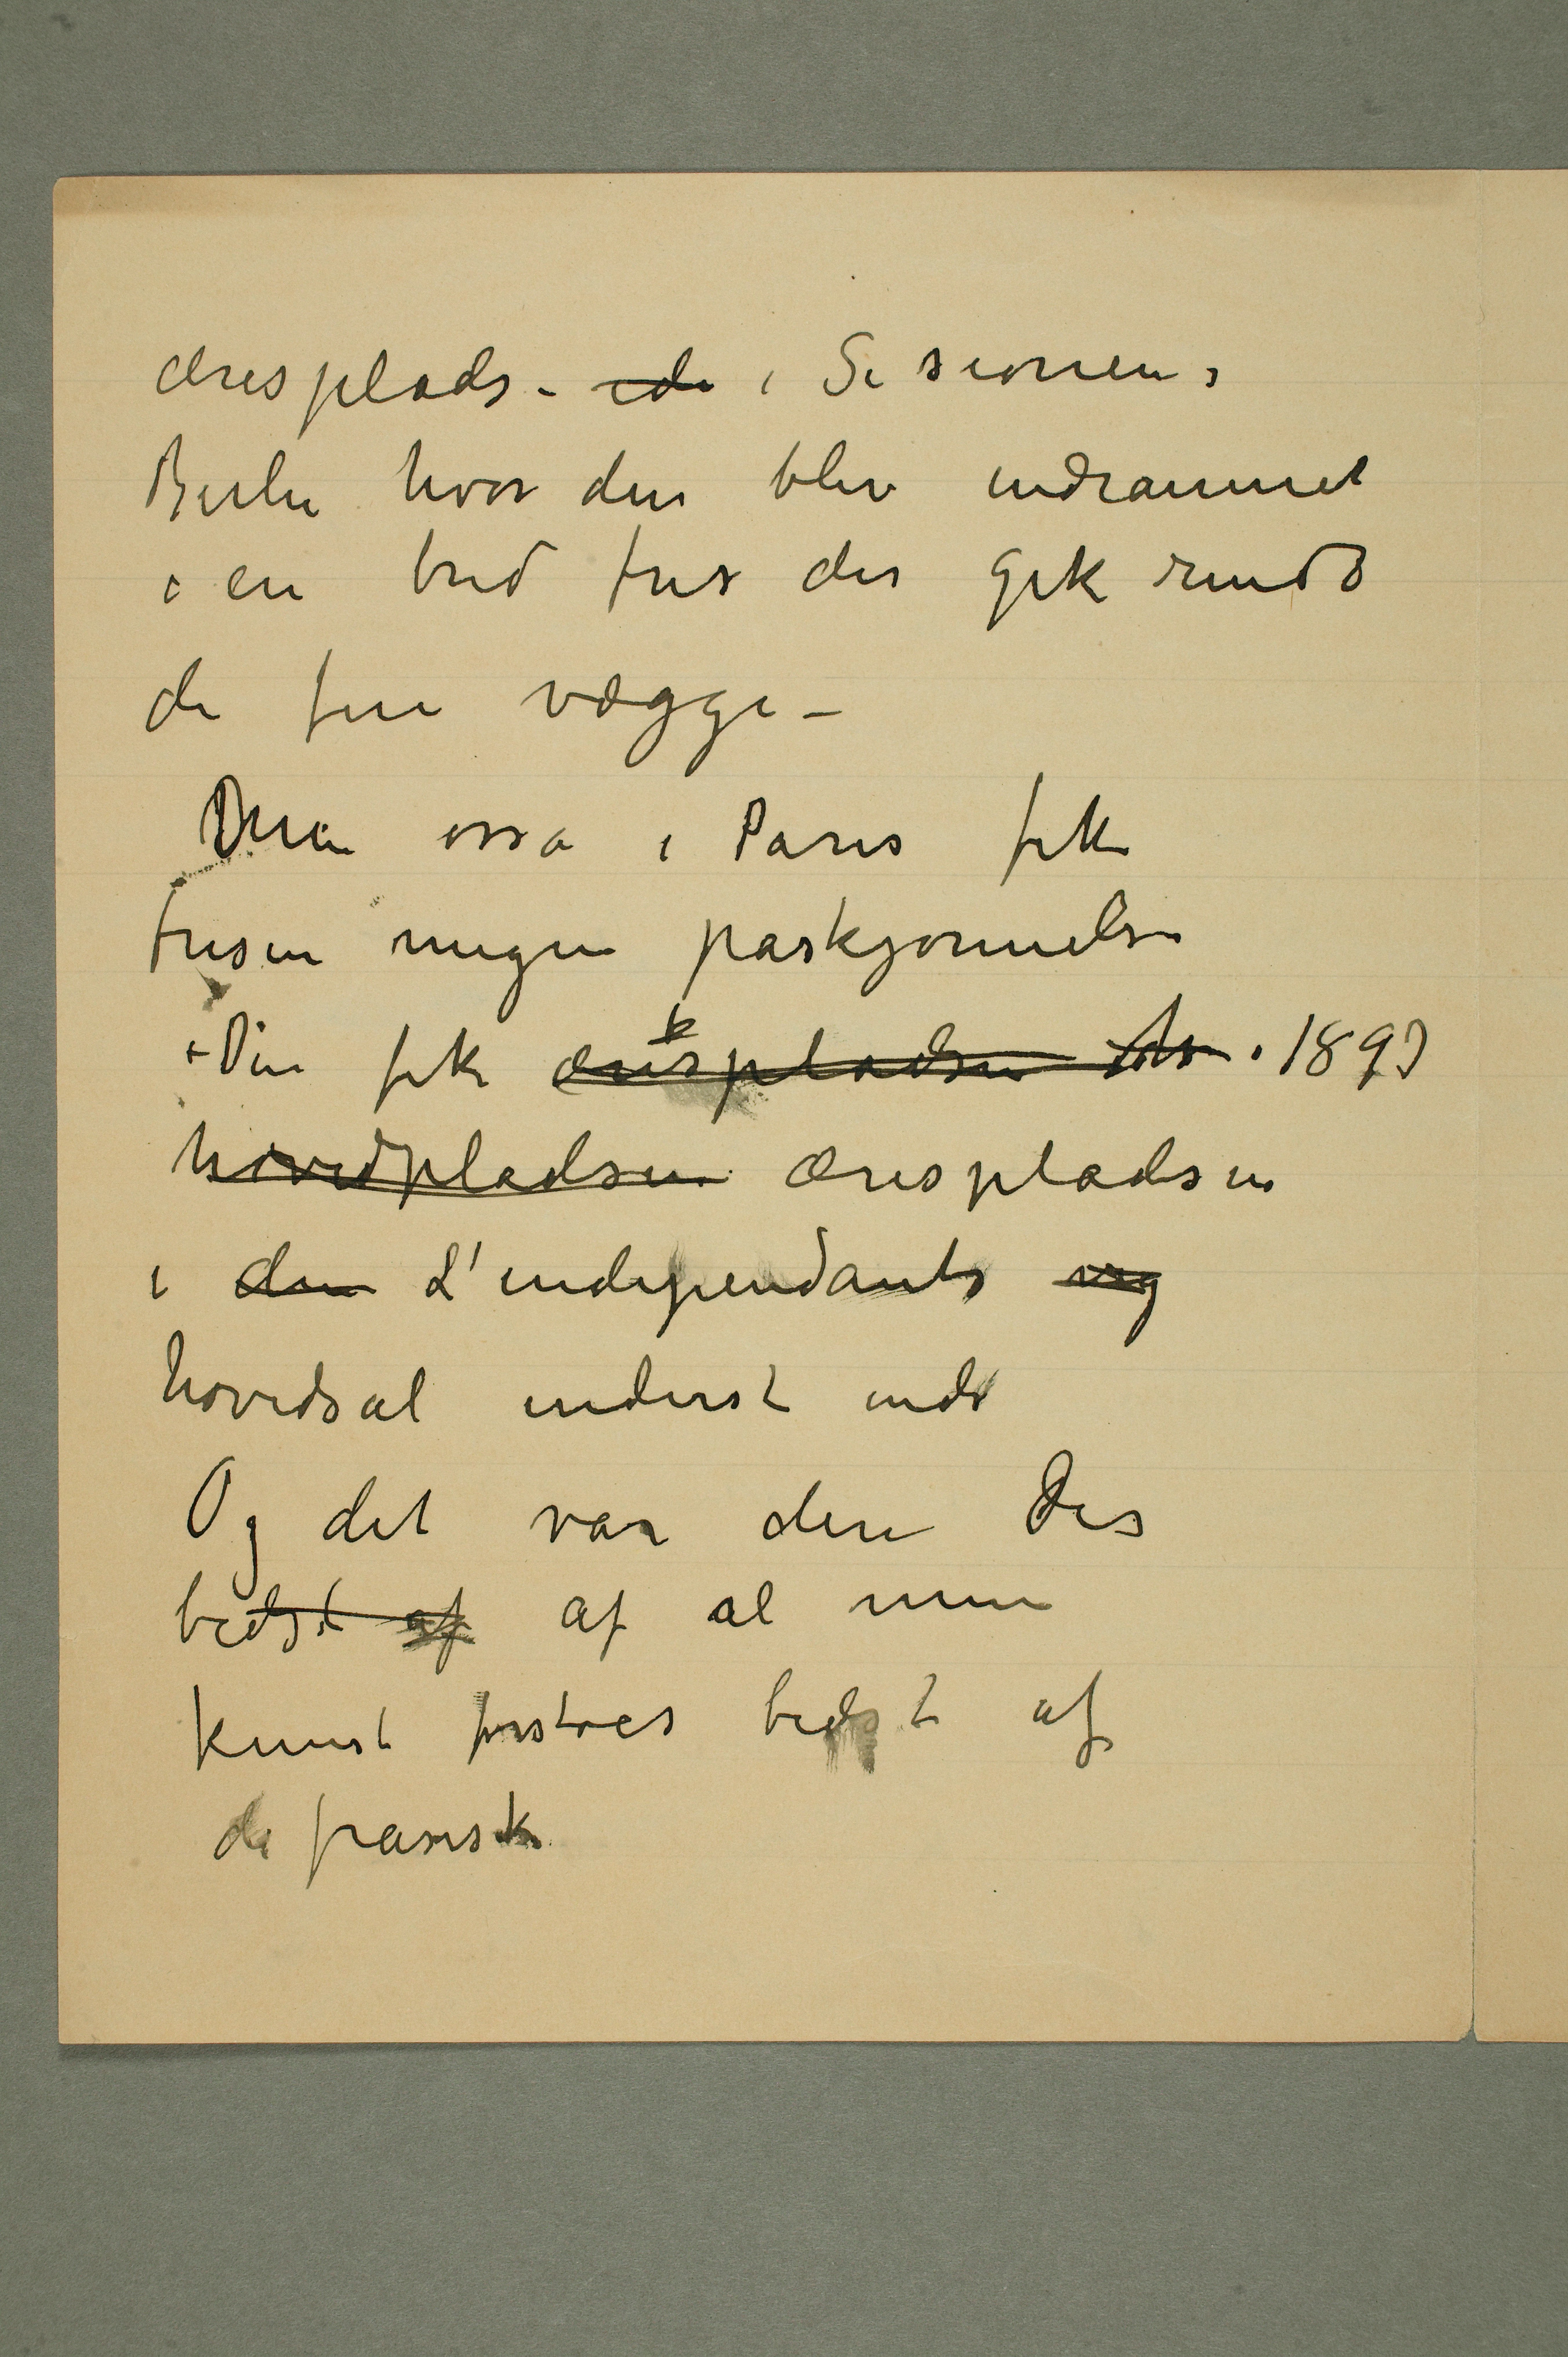 æresplads – ide i Sesionen i
Berlin hvor den blev indrammet
i en bred fris der gik rundt
de fire vægge –
Men osså i Paris fik
frisen megen påskjønnelse
– Den fik ærespladsen i 1897
hovedpladsen ærespladsen
i den L'independants
hovedsal inderst inde
Og det var den der
bedst af af al min
kunst forstoes bedst af
de fransk